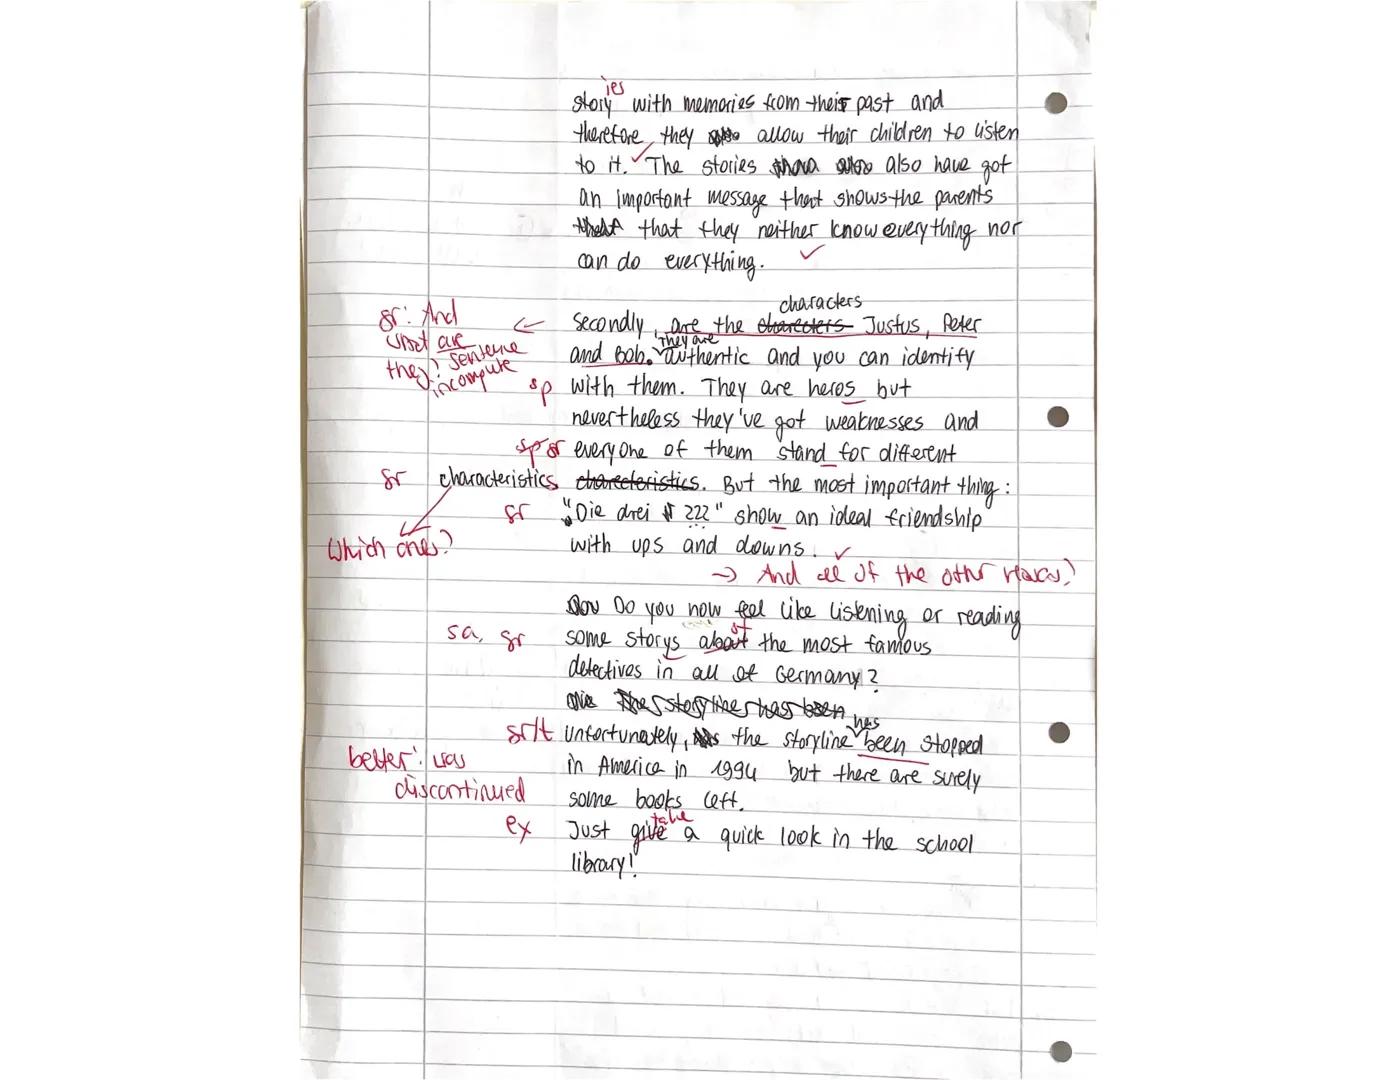 ies
story with memories from their past and
therefore, they allow their children to listen
to it. The stories also have got
an important message that shows the parents
that that they neither know everything nor
can do everything.
characters
gr: And Secondly, are the charecters Justus, Peter
what are
they? sentence
incomplete
They are
and Bob. authentic and you can identify
sp with them. They are heros but
nevertheless they've got weaknesses and
sp gr everyone of them stand for different
gr characteristics charecteristics. But the most important thing:
gr "Die drei ???" show an ideal friendship
Which ones? with ups and downs.
→ And all of the other
Do you now feel like listening or reading
of
sa, gr some storys about the most famous
detectives in all of Germany?
The storyline has been
has
gr/t Unfortunately, the storyline been stopped
better: was in America in 1994 but there are surely
discontinued some books left.
take
ex Just give a quick look in the school
library!